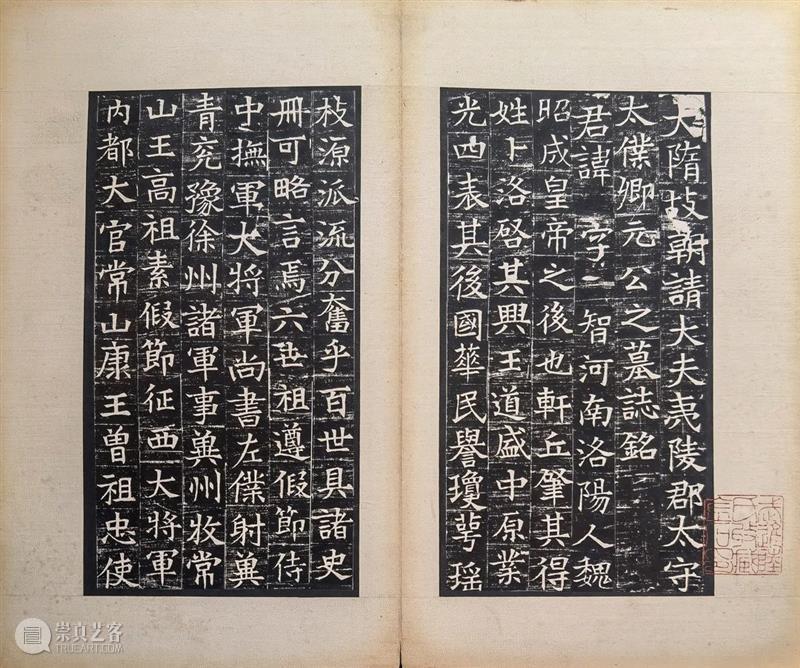 大隋故朝請大夫夷陵郡太守
太僕卿元公之墓誌銘
君諱 字 智河南洛陽人魏
昭成皇帝之後也軒丘肇其得
姓卜洛啓其興王道盛中原業
光四表其後國華民譽瓊萼瑶
枝源派流分奮乎百世具諸史
冊可略言焉六世祖遵假節侍
中撫軍大將軍尚書左僕射兾
青兖豫徐州諸軍事兾州牧常
山王高祖素假節征西大將軍
内都大官常山康王曾祖忠使
崇真艺客
TRUEART.COM